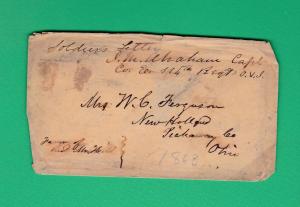 Soldiers Letter
Abraham Capt
Co 114th Regt O.V.I.
Mrs. W. C. Ferguson
New Holland
Pickaway Co
Ohio
1863